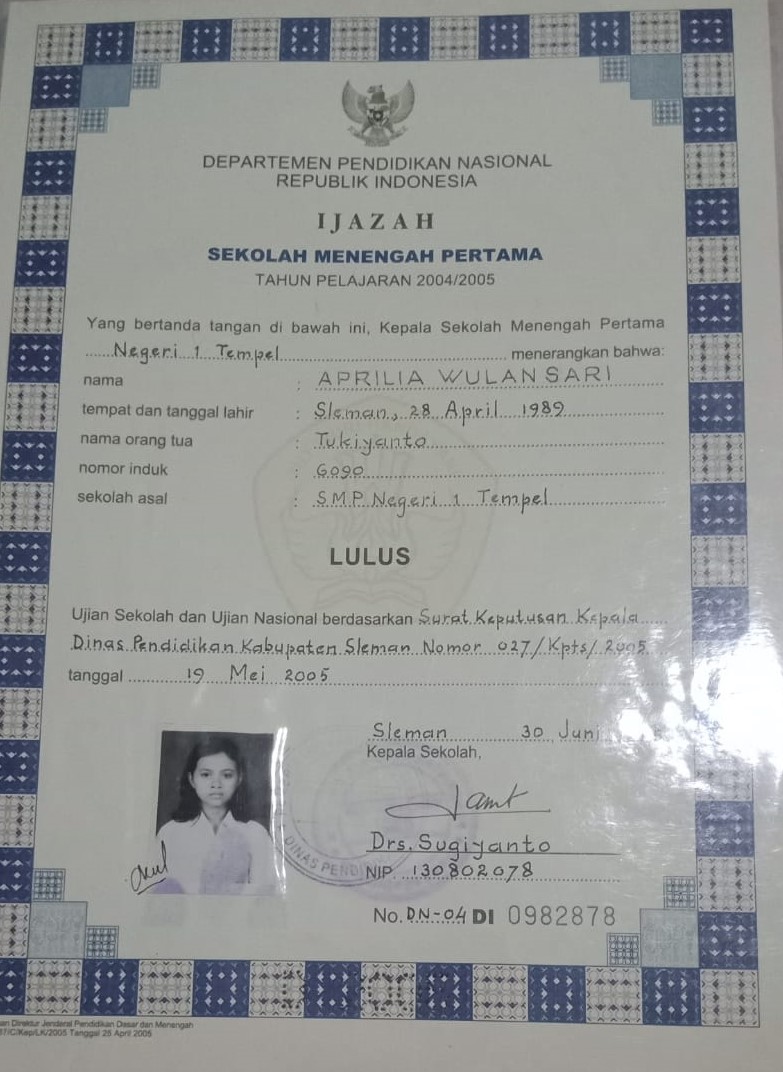 DEPARTEMEN PENDIDIKAN NASIONAL
REPUBLIK INDONESIA
IJAZAH
SEKOLAH MENENGAH PERTAMA
TAHUN PELAJARAN 2004/2005
Yang bertanda tangan di bawah ini, Kepala Sekolah Menengah Pertama
Negeri 1 Tempel menerangkan bahwa:
nama : APRILIA WULAN SARI
tempat dan tanggal lahir : Sleman, 28 April 1989
nama orang tua : Tukiyanto
nomor induk : 6090
sekolah asal : SMP Negeri 1 Tempel
LULUS
Ujian Sekolah dan Ujian Nasional berdasarkan Surat Keputusan Kepala
Dinas Pendidikan Kabupaten Sleman Nomor 027/Kpts/2005
tanggal 19 Mei 2005
Sleman 30 Juni
Kepala Sekolah,
Drs. Sugiyanto
NIP. 130802078
DINAS
No. DN-04 DI 0982878
Direktur Jenderal Pendidikan Dasar dan Menengah
/C/Kep/LK/2005 Tanggal 25 April 2005